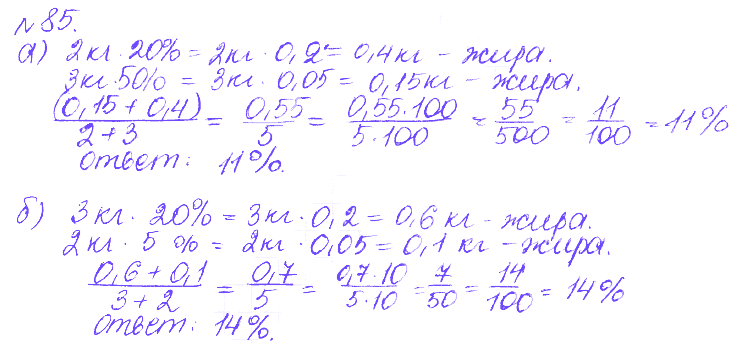 №85.
а) 2кг · 20% = 2кг · 0,2 = 0,4кг - жира.
3кг · 50% = 3кг · 0,05 = 0,15кг - жира.
(0,15 + 0,4)/(2+3) = 0,55/5 = 0,55·100/5·100 = 55/500 = 11/100 = 11%
ответ: 11%.
б) 3кг · 20% = 3кг · 0,2 = 0,6 кг - жира.
2кг · 5% = 2кг · 0,05 = 0,1 кг - жира.
(0,6 + 0,1)/(3+2) = 0,7/5 = 0,7·10/5·10 = 7/50 = 14/100 = 14%
ответ: 14%.